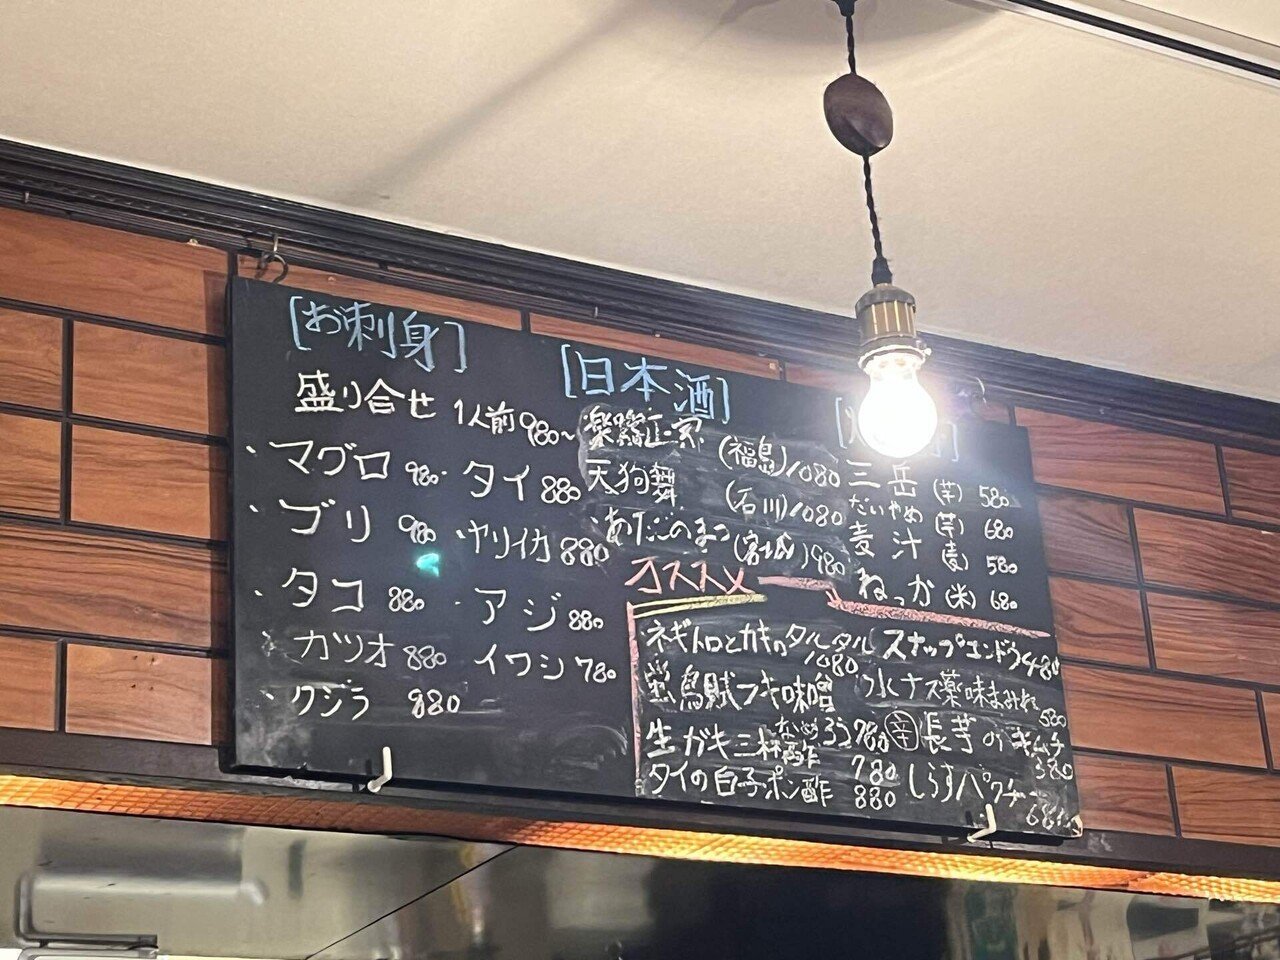 [お刺身]
盛り合せ 1人前 980~
・マグロ 980 ・タイ 880
・ブリ 980 ・ヤリイカ 880
・タコ 880 ・アジ 880
・カツオ 880 イワシ 780
・クジラ 880
[日本酒]
(福島) 1080
天狗舞 (石川) 1080
あたごのまつ (宮城) 980
三岳 (芋) 580
だいやめ (芋) 680
麦汁 (麦) 580
ねっか (米) 680
オススメ
ネギトロとカキのタルタル 1080
蛍烏賊フキ味噌
なめろう 780
生ガキ三杯酢 780
タイの白子ポン酢 880
スナップエンドウ 480
水ナス薬味まみれ 580
辛 長芋のキムチ 380
しらすパクチー